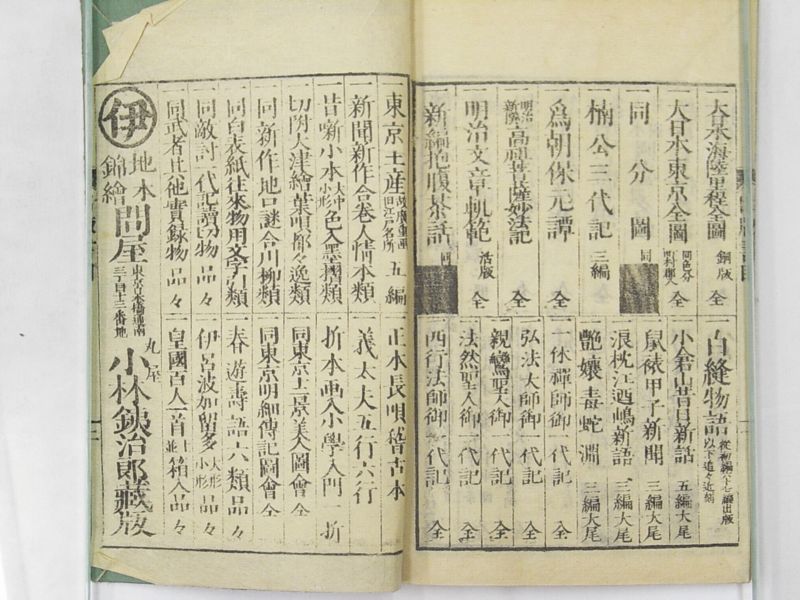 大日本海陸里程全圖 銅版 全
大日本東京全圖 全
同分圖 同
楠公三代記 三編
爲朝保元譚 全
明治新撰 高祖日蓮妙法記 全
明治文章軌範 活版 全
新編抱腹茶話 同
白縫物語
小倉山昔日新話 五編大尾
鼠裱甲子新聞 三編大尾
浪枕江迺嶋新語 三編大尾
艶孃毒蛇淵 三編大尾
一休禪師御一代記 全
弘法大師御一代記 全
親鸞聖人御一代記 全
法然聖人御一代記 全
西行法師御一代記 全
東京土産 五編
一新聞新作合卷人情本類
一昔噺小本 大中小形 色入墨摺類
一切附大津繪葉唄都々逸類
一同新作地口謎合川柳類
一同白表紙往來物用文字引類
一同敵討一代記讀切物 品々
一同武者其他實録物 品々
一正本長唄稽古本
一義太夫五行六行
一折本画入小學入門 一折
一同東京十二景美人圖會 全
一同東京明細傳記圖會 全
一春遊壽語六類品々
一伊呂波加留多 大形小形 品々
一皇國百人一首 箱入品々
伊 地本錦繪問屋
東京日本橋通南三丁目十三番地
丸屋 小林鉄治郎藏版